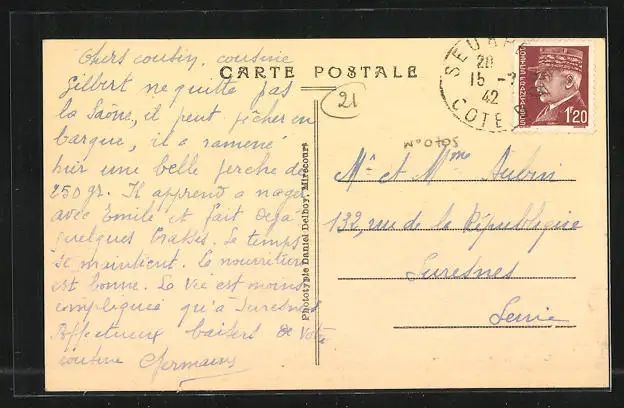 Chers cousin, cousine
Gilbert ne quitte pas
la Saône, il peut pêcher en
barque, il a ramené
hier une belle perche de
250 gr. Il apprend a nager
avec Emile et fait deja
quelques brasses. Le temps
se maintient. La nourriture
est bonne. La vie est moins
compliquée qu'à Suresnes
Affectueux baisers de votre
cousine Germaine
CARTE POSTALE
21
Phototypie Daniel Delboy, Mirecourt
SEURRE
20
15 -
42
COTE
1F20
Mr et Mme Aubin
132, rue de la République
Suresnes
Seine